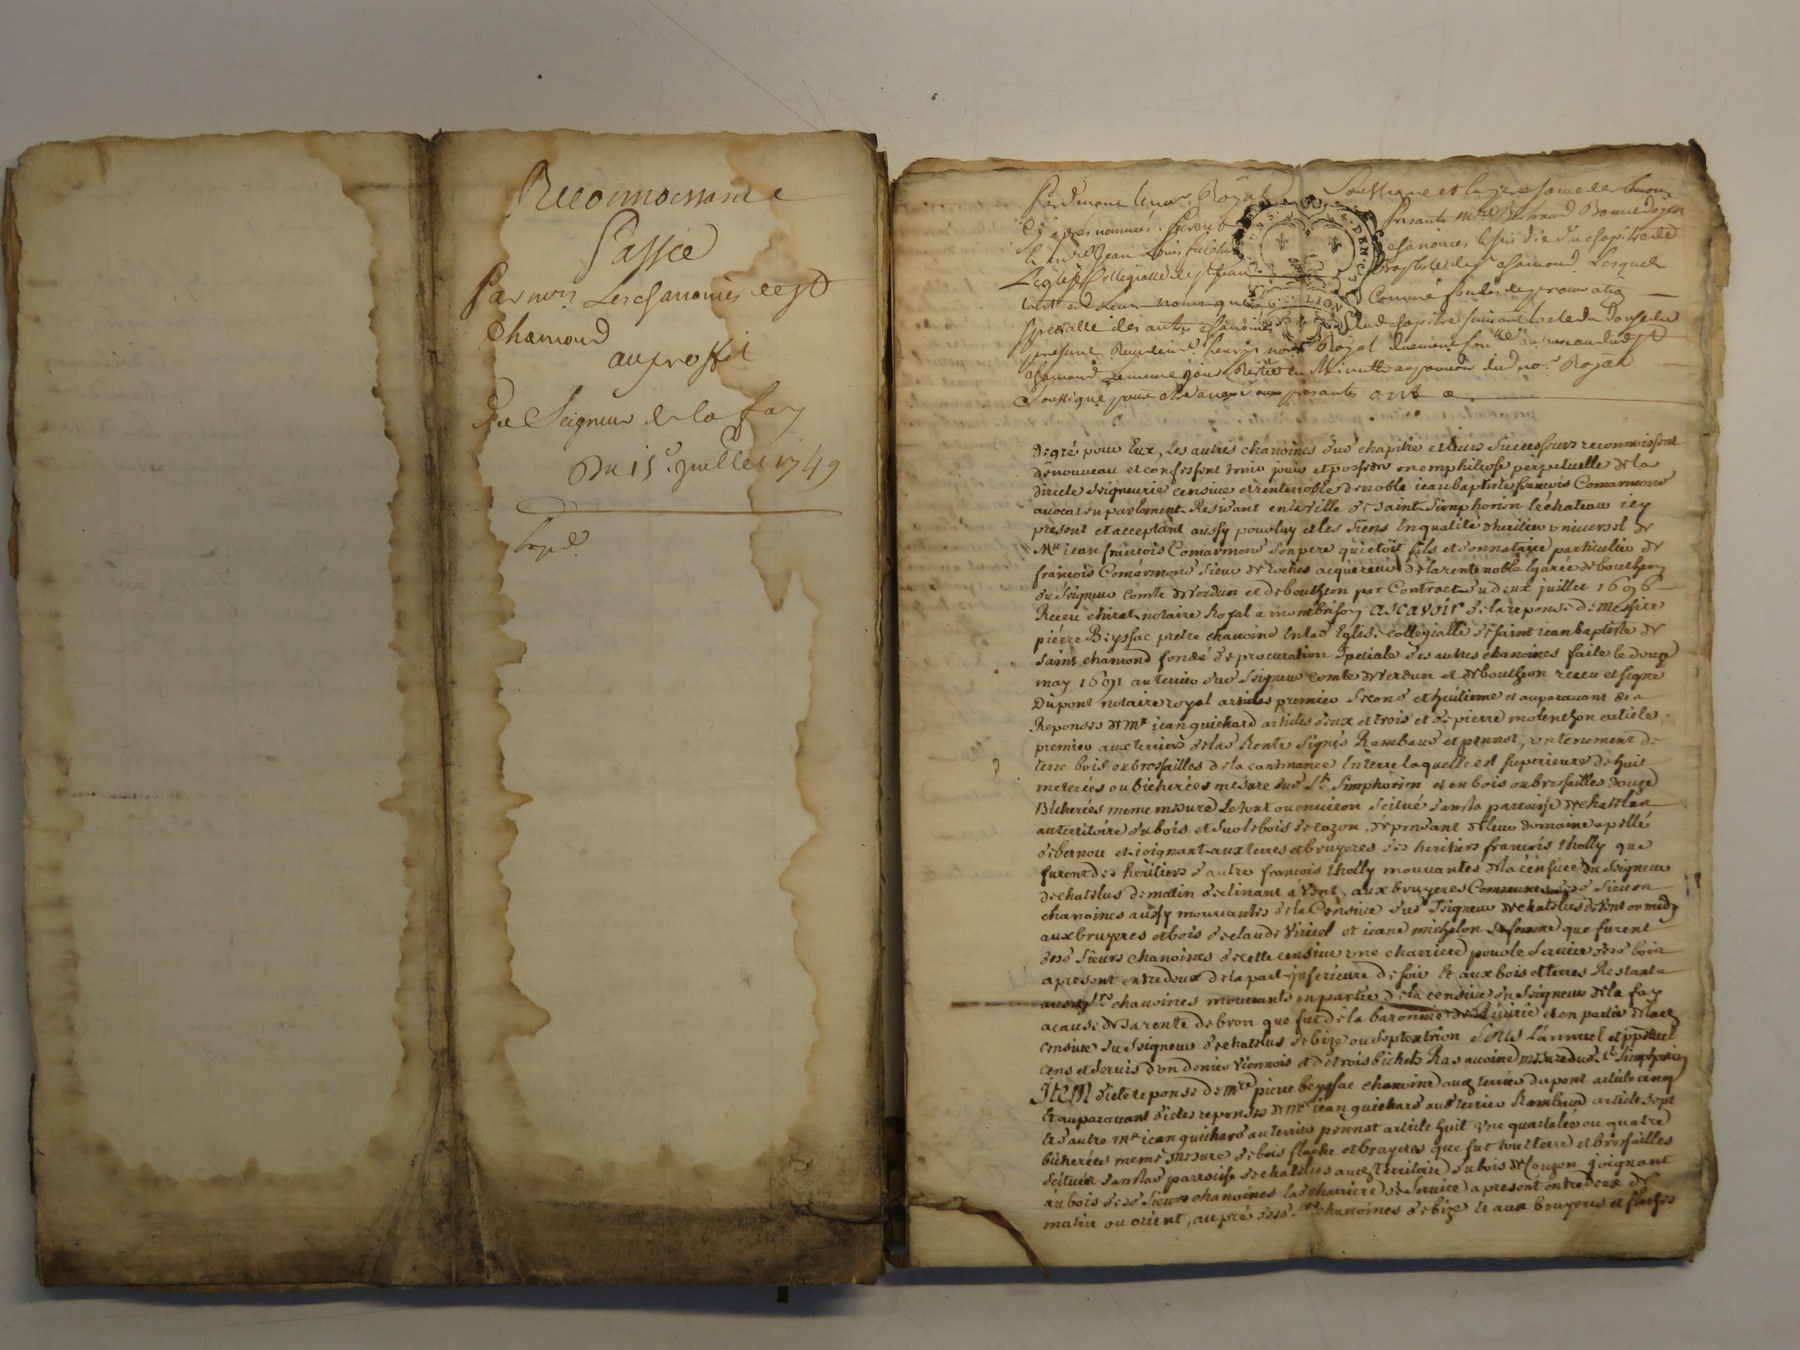 Reconnoissance
Passée
Par mrs Les chanoines de St
Chamond
au proffit
Du Seigneur de la fay
Du 15e Juillet 1749
Pardevant le no.re Royal Soussigné et en presence des temoins
cy après nommés. furent presents Bertrand
Jean Louis chanoines du chapitre de
L'Eglise Collegialle de St Jean Baptiste de St chamond. Lesquels
tant en leur nom que comme fondés de procuration
specialle des autres chanoines dud chapitre suivant l'acte du
present Royal
chamond le meme jour au pouvoir du no.re Royal
Soussigné pour aux presantes ont
de gré pour Eux, Les autres chanoines dud chapitre et leurs successeurs reconnoissent
de nouveau et confessent tenir jouir et posseder en emphiteose perpetuelle de la
directe seigneurie censive et rente noble de noble iean baptiste françois Comarmond
avocat en parlement Residant en la ville de saint Simphorien le chateau icy
present et acceptant aussy pour luy et les siens En qualité d'heritier universel de
Mre iean françois Comarmond son pere qui étoit fils et donnataire particulier de
françois Comarmond sieur de acquereur de la rente noble de bouthéon
du seigneur comte de verdun et de boutheon par Contract du deux juillet 1696
Receu chirat notaire Royal a montbrison ascavoir de la reponse de messire
pierre Beyssac pretre chanoine En lad Eglise collegialle de saint iean baptiste de
saint chamond fondé de procuration speciale des autres chanoines faite le douze
may 1691 au terrier dud seigneur comte de verdun et de boutheon receu et signé
Dupont notaire royal articles premier second et huitieme et auparavant de la
Reponses de Mre iean guichard articles deux et trois et de pierre molenchon article
premier aux terriers de lad Rente signés Rambaud et penrot, un tenement de
terre bois et brossailles de la contenance En terre laquelle est superieure de huit
meterées ou bicherées mesure dud St Simphorien et en bois ou brossailles douze
Bicherées meme mesure Le tout ou environ scitué dans la parroisse de chatelus
au territoire du bois et sur le bois de cozon, dependant de leur domaine apellé
de bernou et joignant aux terres et bruyeres des heritiers françois tholly que
furent des heritiers d'autre françois tholly mouvantes de la censive du seigneur
de chatelus de matin declinant a vent, aux bruyeres Communes desd sieurs
chanoines aussy mouvantes de la Censive dud seigneur de chatelus de vent ou midy
aux bruyeres et bois de claude viricel et ieane michelon sa femme que furent
desd sieurs chanoines de cette censive une charriere pour le service desd bois
a present entredeux de la part inferieure de soir Et aux bois et terres Restants
auxd Srs chanoines mouvants en partie de la censive du seigneur de la fay
a cause de sa rente de bron que fut de la baronnie de Riverie et en partie de lad
censive du seigneur de chatelus de bize ou septentrion sous L'annuel et perpetuel
cens et servis d'un denier viennois et de trois bichets Ras avoine mesure dud St Simphorien
Item de la reponse de Mre pierre beyssac chanoine aud terrier dupont article cinq
Et auparavant de les reponses de Mre iean guichard aud terrier Rambaud article sept
Et d'autre Mre iean guichard au terrier penrot article huit une quartelée ou quatre
bicherées meme mesure de bois flache et bruyeres que fut tout terre et brossailles
scitué dans lad parroisse de chatelus aud territoire du bois de Couzon joignant
au bois desd sieurs chanoines lad charriere de service a present entredeux de
matin ou orient, au pré desd Srs chanoines de bize Et aux bruyeres et flaches